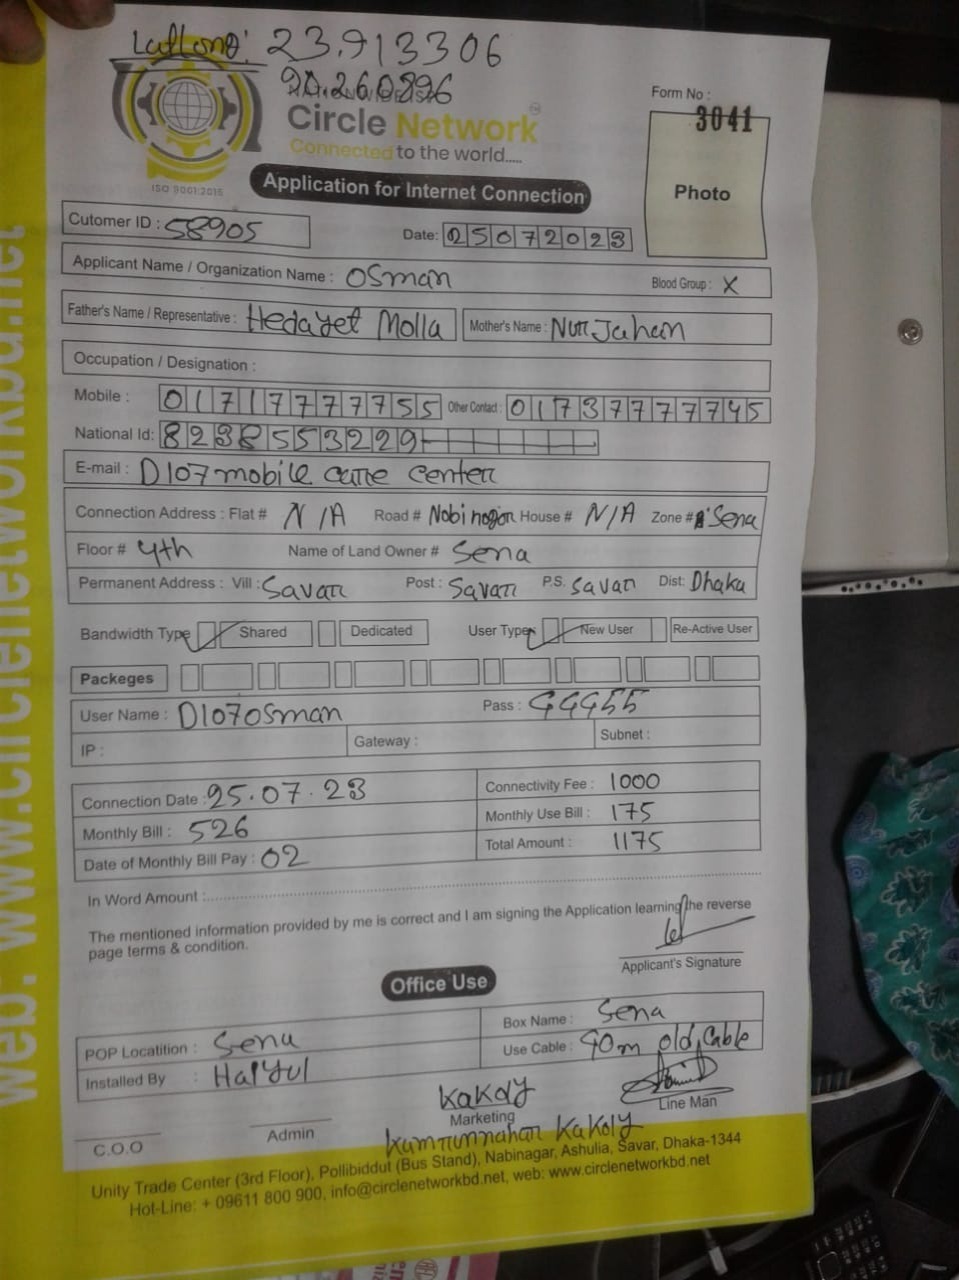 Latlong: 23.913306
90.260896
Circle Network
Connected to the world.....
ISO 9001:2015
Form No :
3041
Photo
Application for Internet Connection
Cutomer ID : 58905
Date: 25072023
Applicant Name / Organization Name : Osman Blood Group : X
Father's Name / Representative : Hedayet Molla Mother's Name : Nur Jahan
Occupation / Designation :
Mobile : 01717777755 Other Contact : 01737777745
National Id: 8238553229
E-mail : D107mobile care center
Connection Address : Flat # N/A Road # Nobinogor House # N/A Zone # Sena
Floor # 4th Name of Land Owner # Sena
Permanent Address : Vill : Savar Post : Savar P.S. Savar Dist: Dhaka
Bandwidth Type Shared Dedicated User Type New User Re-Active User
Packeges
User Name : D107Osman Pass : 44455
IP : Gateway : Subnet :
Connection Date : 25.07.23 Connectivity Fee : 1000
Monthly Bill : 526 Monthly Use Bill : 175
Date of Monthly Bill Pay : 02 Total Amount : 1175
In Word Amount :
The mentioned information provided by me is correct and I am signing the Application learning the reverse
page terms & condition.
Applicant's Signature
Office Use
POP Locatition : Senu Box Name : Sena
Installed By : Haiyul Use Cable : 90m old, Cable
C.O.O Admin Kakoly Marketing Line Man
Kamrunnahar Kakoly
Unity Trade Center (3rd Floor), Pollibiddut (Bus Stand), Nabinagar, Ashulia, Savar, Dhaka-1344
Hot-Line: + 09611 800 900, info@circlenetworkbd.net, web: www.circlenetworkbd.net
web: www.circlenetworkbd.net